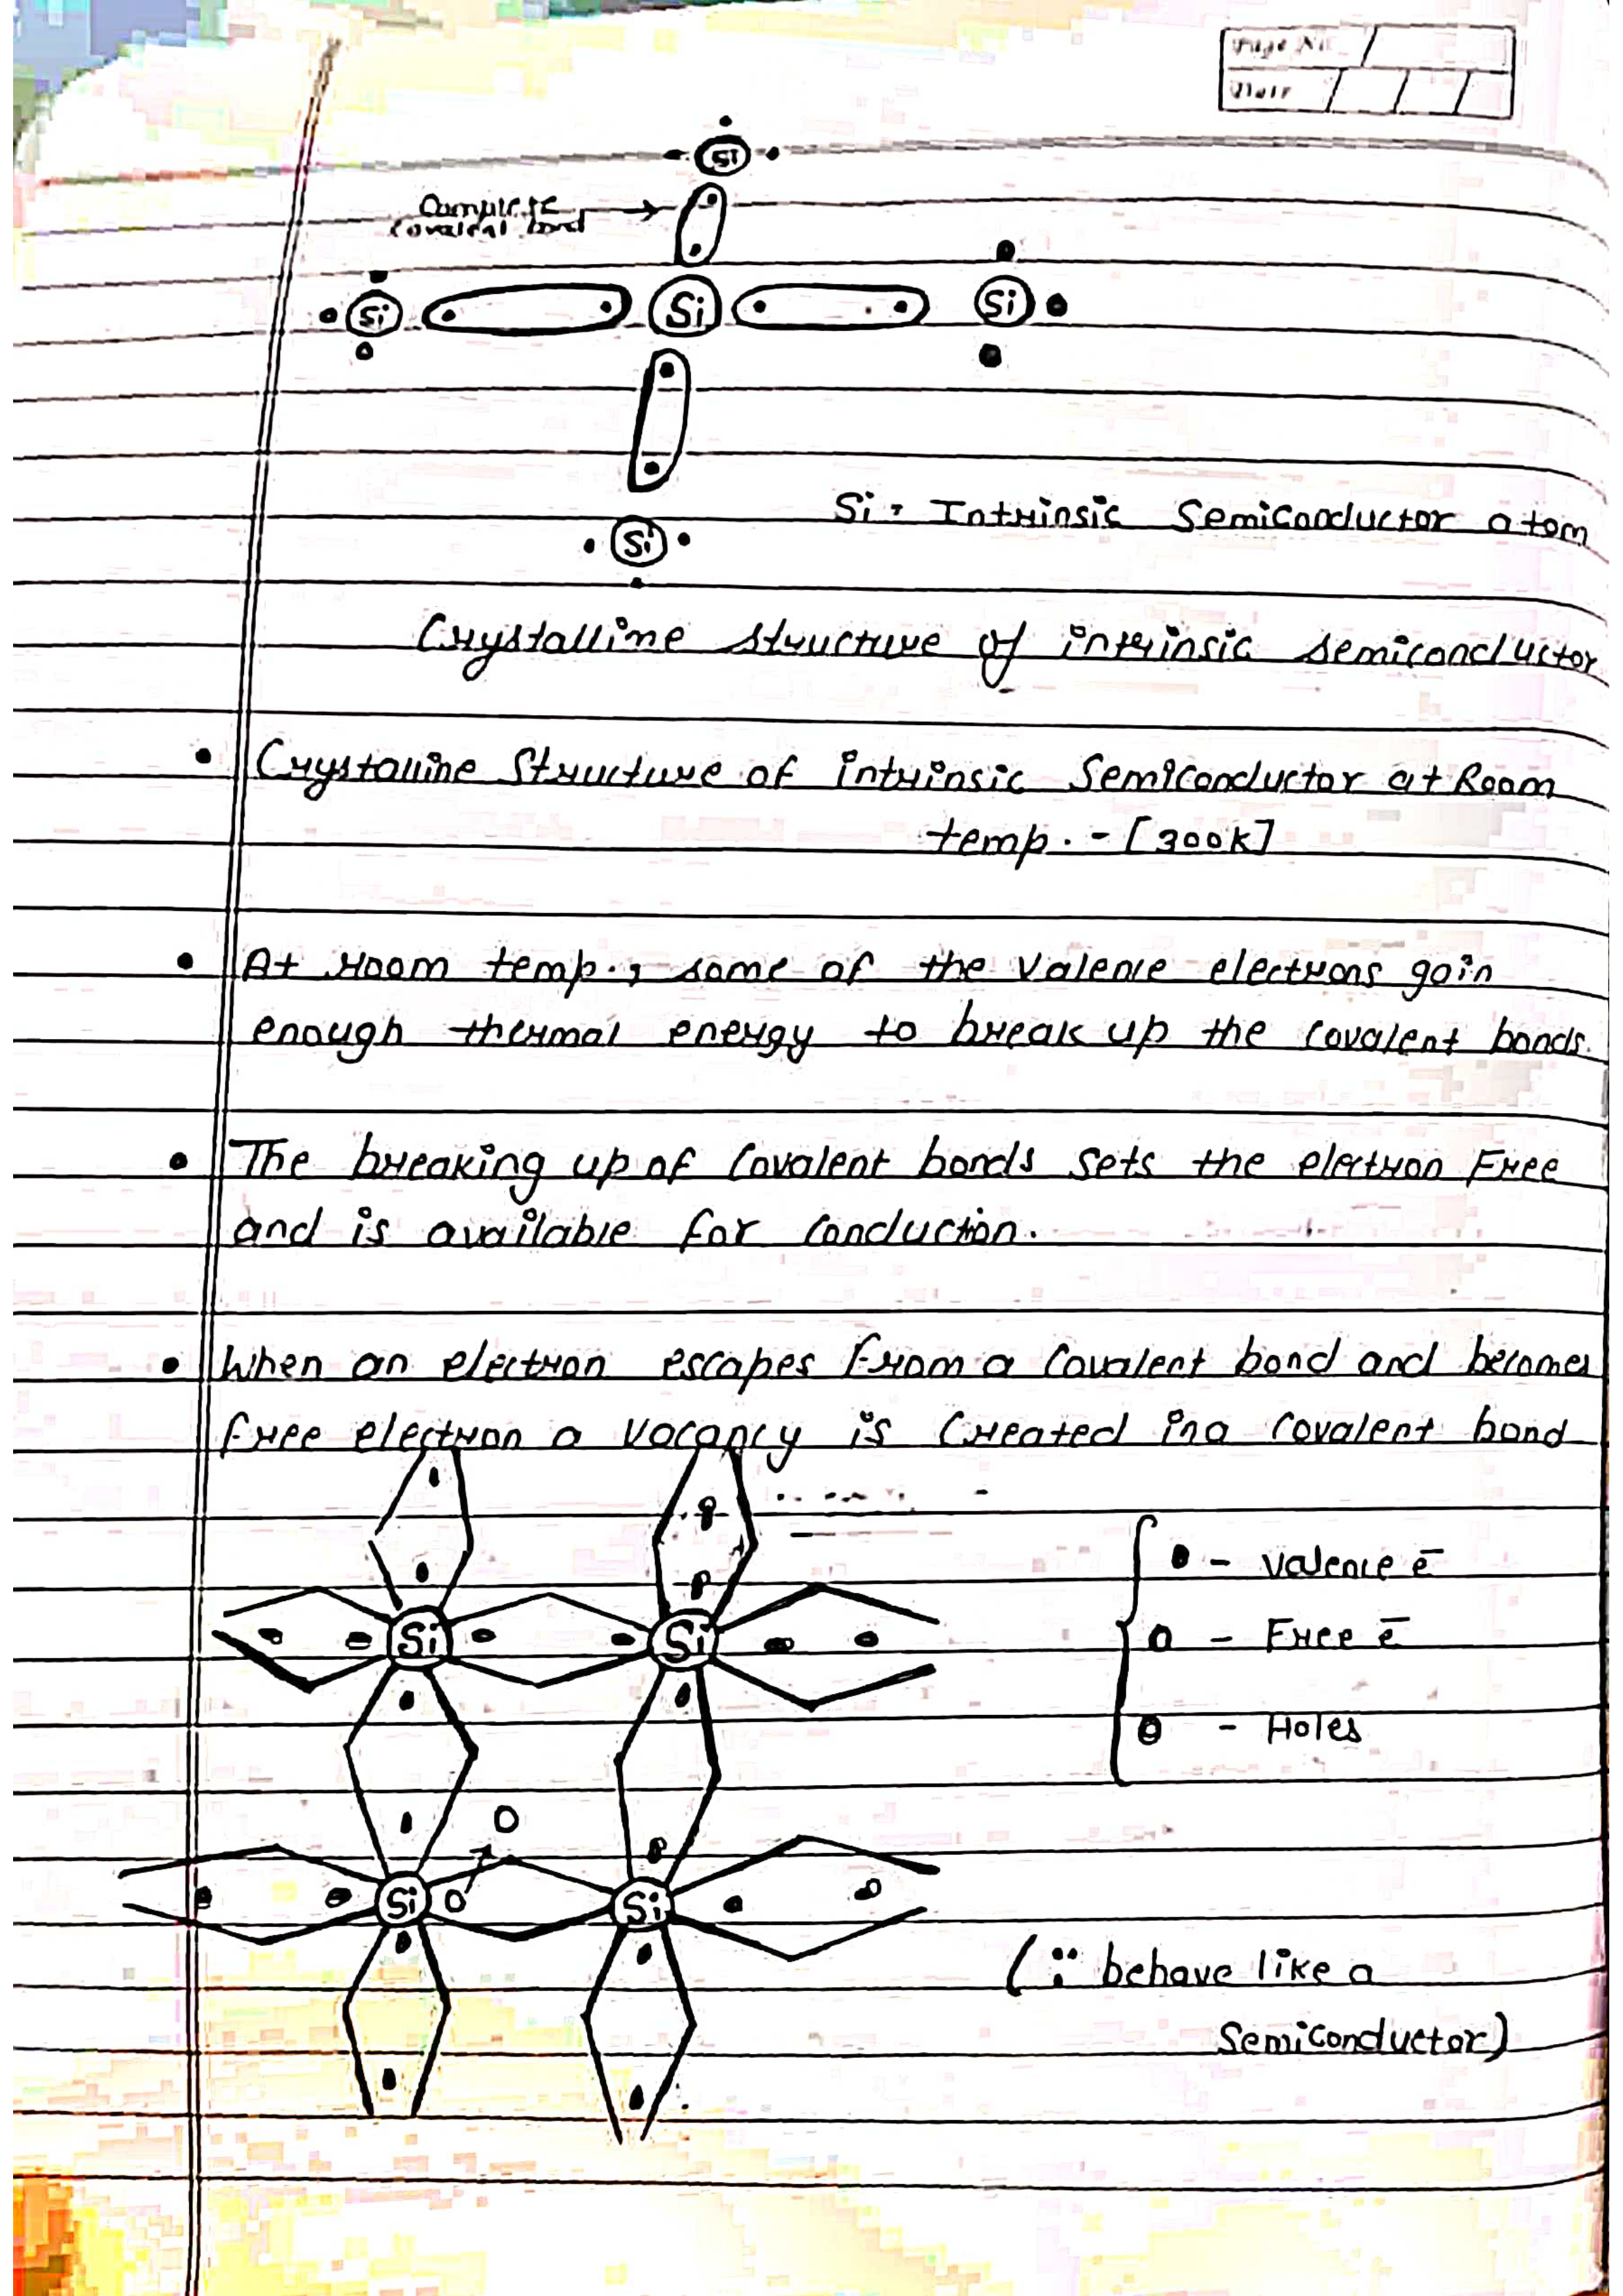 Page No.
Date
Si
Complete
covalent bond
Si Si Si
Si = Intrinsic Semiconductor atom
Si
Crystalline structure of intrinsic semiconductor
• Crystalline Structure of intrinsic Semiconductor at Room
temp. - [300K]
• At room temp., some of the valence electrons gain
enough thermal energy to break up the covalent bonds.
• The breaking up of covalent bonds sets the electron Free
and is available for conduction.
• When an electron escapes from a covalent bond and becomes
free electron a vacancy is created in a covalent bond
- valence e̅
Si Si
- Free e̅
- Holes
Si Si
(∵ behave like a
Semiconductor)